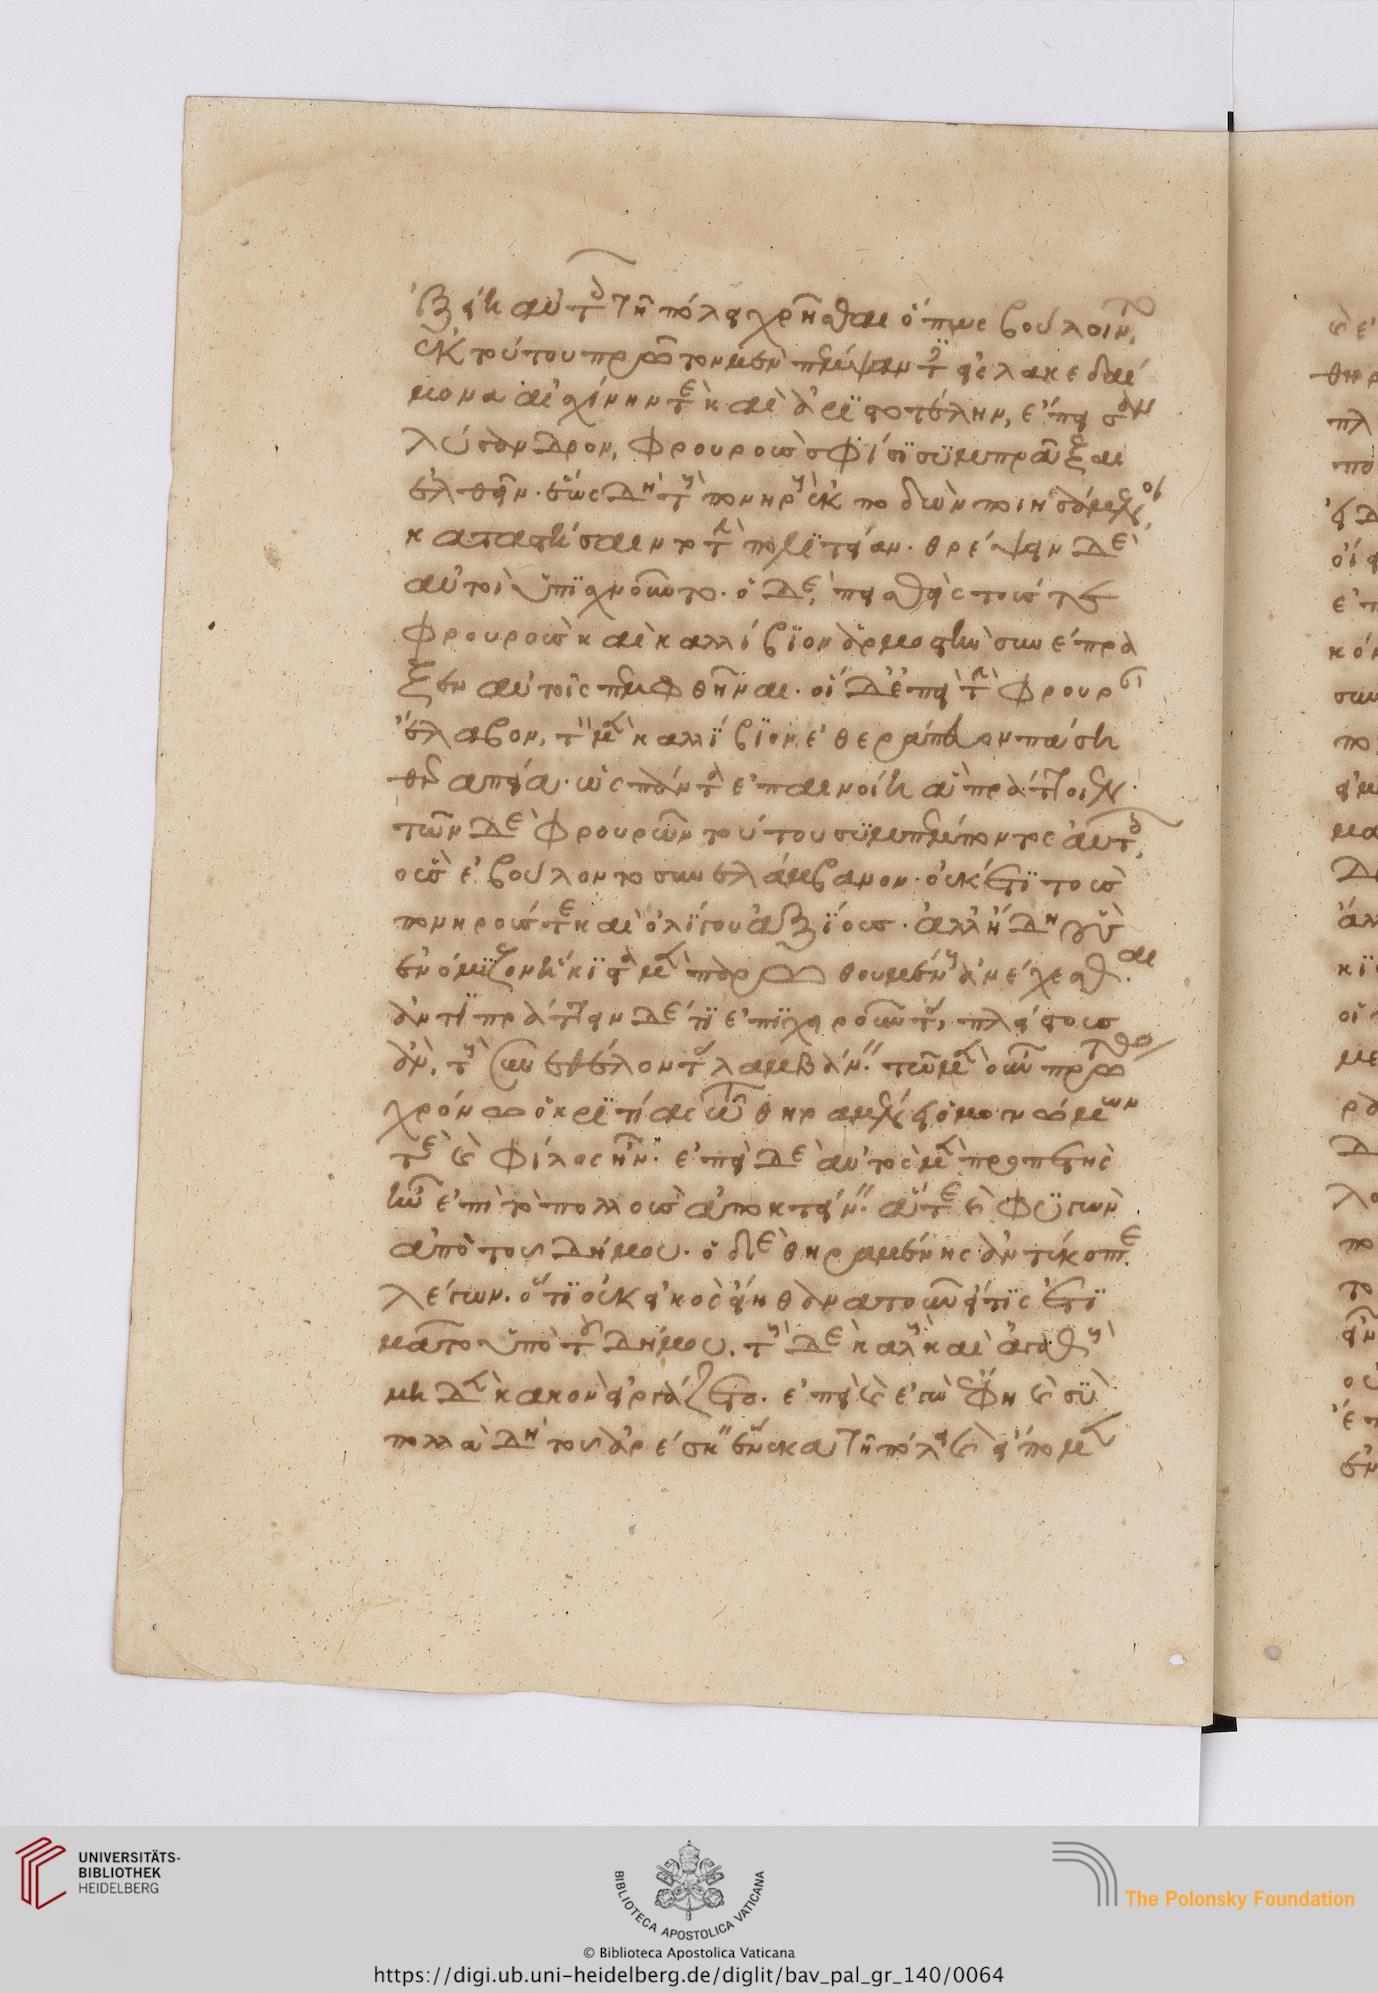 ἐξείη αὐτοῖς τῇ πόλει χρῆσθαι ὅπως βούλοιντο,
ἐκ τούτου πρῶτον μὲν πέμψαντες εἰς λακεδαί
μονα αἰσχίνην τὲ καὶ ἀριστοτέλην, ἔπεισαν
λύσανδρον, φρουροὺς σφίσι συμπρᾶξαι
ἐλθεῖν. ἕως δὴ τοὺς πονηροὺς ἐκ ποδὼν ποιησάμενοι,
καταστήσαιντο τὴν πολιτείαν. θρέψειν δὲ
αὐτοὶ ὑπισχνοῦντο. ὁ δὲ, πεισθεὶς τούς τε
φρουροὺς καὶ καλλίβιον ἁρμοστὴν συνέπρα
ξεν αὐτοῖς πεμφθῆναι. οἱ δ' ἐπεὶ τὴν φρουρὰν
ἔλαβον, τὸν μὲν καλλίβιον ἐθεράπευον πάσῃ
θεραπεία. ὡς πάντα ἐπαινοίη ἃ πράττοιεν.
τῶν δὲ φρουρῶν τούτου συμπέμποντος αὐτοῖς,
οὓς ἐβούλοντο συνελάμβανον. οὐκέτι τοὺς
πονηρούς τε καὶ ὀλίγου ἀξίους. ἀλλ' ἤδη οὓς
ἐνόμιζον ἥκιστα μὲν παρωθουμένους ἀνέχεσθαι.
ἀντιπράττειν δέ τι ἐπιχειροῦντας, πλείστους
ἂν, τοὺς συνεθέλοντας λαμβάνειν. τῷ μὲν οὖν πρώτῳ
χρόνῳ ὁ κριτίας τῷ θηραμένει ὁμογνώμων
τὲ καὶ φίλος ἦν. ἐπεὶ δὲ αὐτὸς μὲν προπετὴς
ἦν ἐπὶ τὸ πολλοὺς ἀποκτείνειν. ἅτε καὶ φυγὼν
ἀπὸ τοῦ δήμου. ὁ δὲ θηραμένης ἀντέκοπτε.
λέγων. ὅτι οὐκ εἰκὸς εἴη θανατοῦν εἴ τις ἐτι
μᾶτο ὑπὸ τοῦ δήμου. τοὺς δὲ καλοὺς καὶ ἀγαθοὺς
μηδὲν κακὸν εἰργάζετο. ἐπεὶ καὶ ἐγὼ ἔφη καὶ σὺ
πολλὰ δὴ τοῦ ἀρέσκειν ἕνεκα τῇ πόλει καὶ εἴπομεν
UNIVERSITÄTS-
BIBLIOTHEK
HEIDELBERG
BIBLIOTECA APOSTOLICA VATICANA
© Biblioteca Apostolica Vaticana
The Polonsky Foundation
https://digi.ub.uni-heidelberg.de/diglit/bav_pal_gr_140/0064